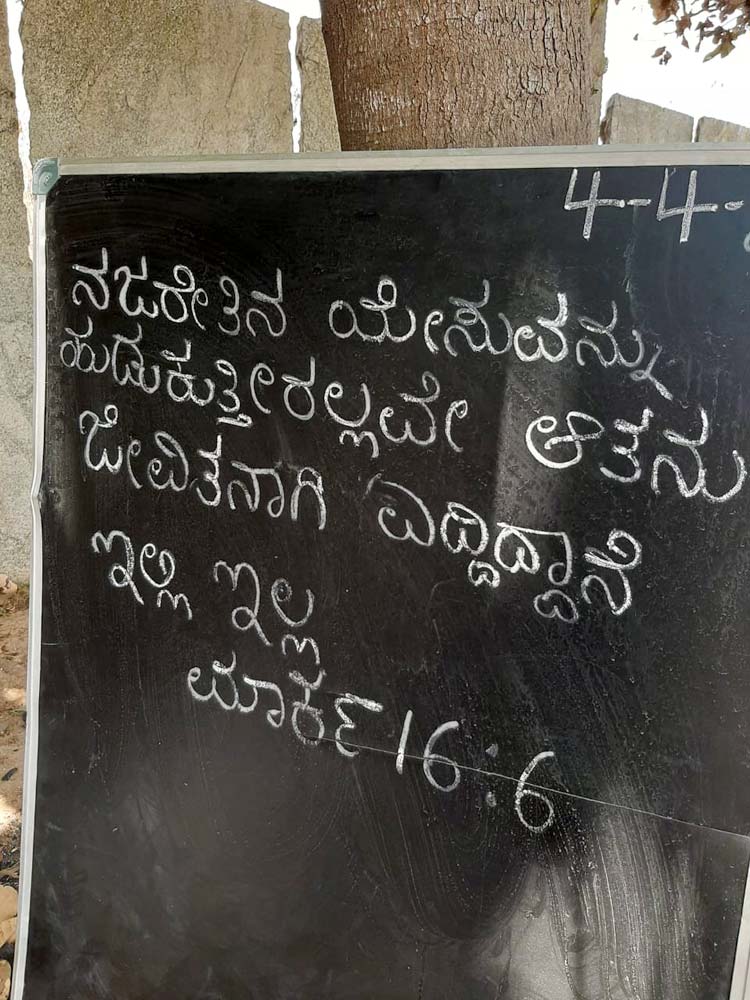 4-4-
ನಜರೇತಿನ ಯೇಸುವನ್ನು
ಹುಡುಕುತ್ತೀರಲ್ಲವೇ ಆತನು
ಜೀವಿತನಾಗಿ ಎದ್ದಿದ್ದಾನೆ
ಇಲ್ಲಿ ಇಲ್ಲ
ಮಾರ್ಕ 16:6